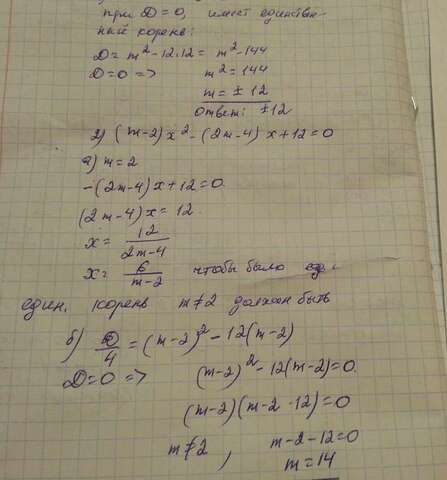 при D=0, имеет единствен-
ный корень:
D= m²-12·12= m²-144
D=0 => m²=144
m=±12
Ответ: ±12
2) (m-2)x²-(2m-4)x+12=0
а) m=2
-(2m-4)x+12=0
(2m-4)x=12
x= 12/2m-4
x= 6/m-2 чтобы было
един. корень m≠2 должен быть
б) D/4=(m-2)²-12(m-2)
D=0 => (m-2)²-12(m-2)=0
(m-2)(m-2-12)=0
m≠2, m-2-12=0
m=14